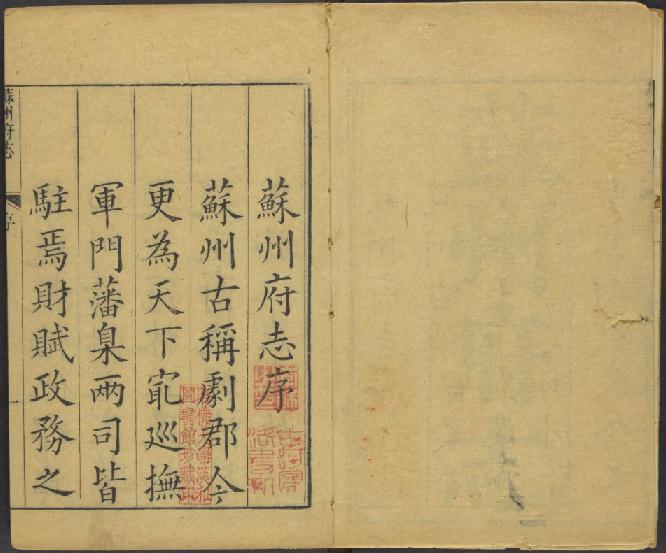 蘇州府志序
蘇州古稱劇郡今
更為天下冣巡撫
軍門藩臬兩司皆
駐焉財賦政務之
蘇州府志
序
一